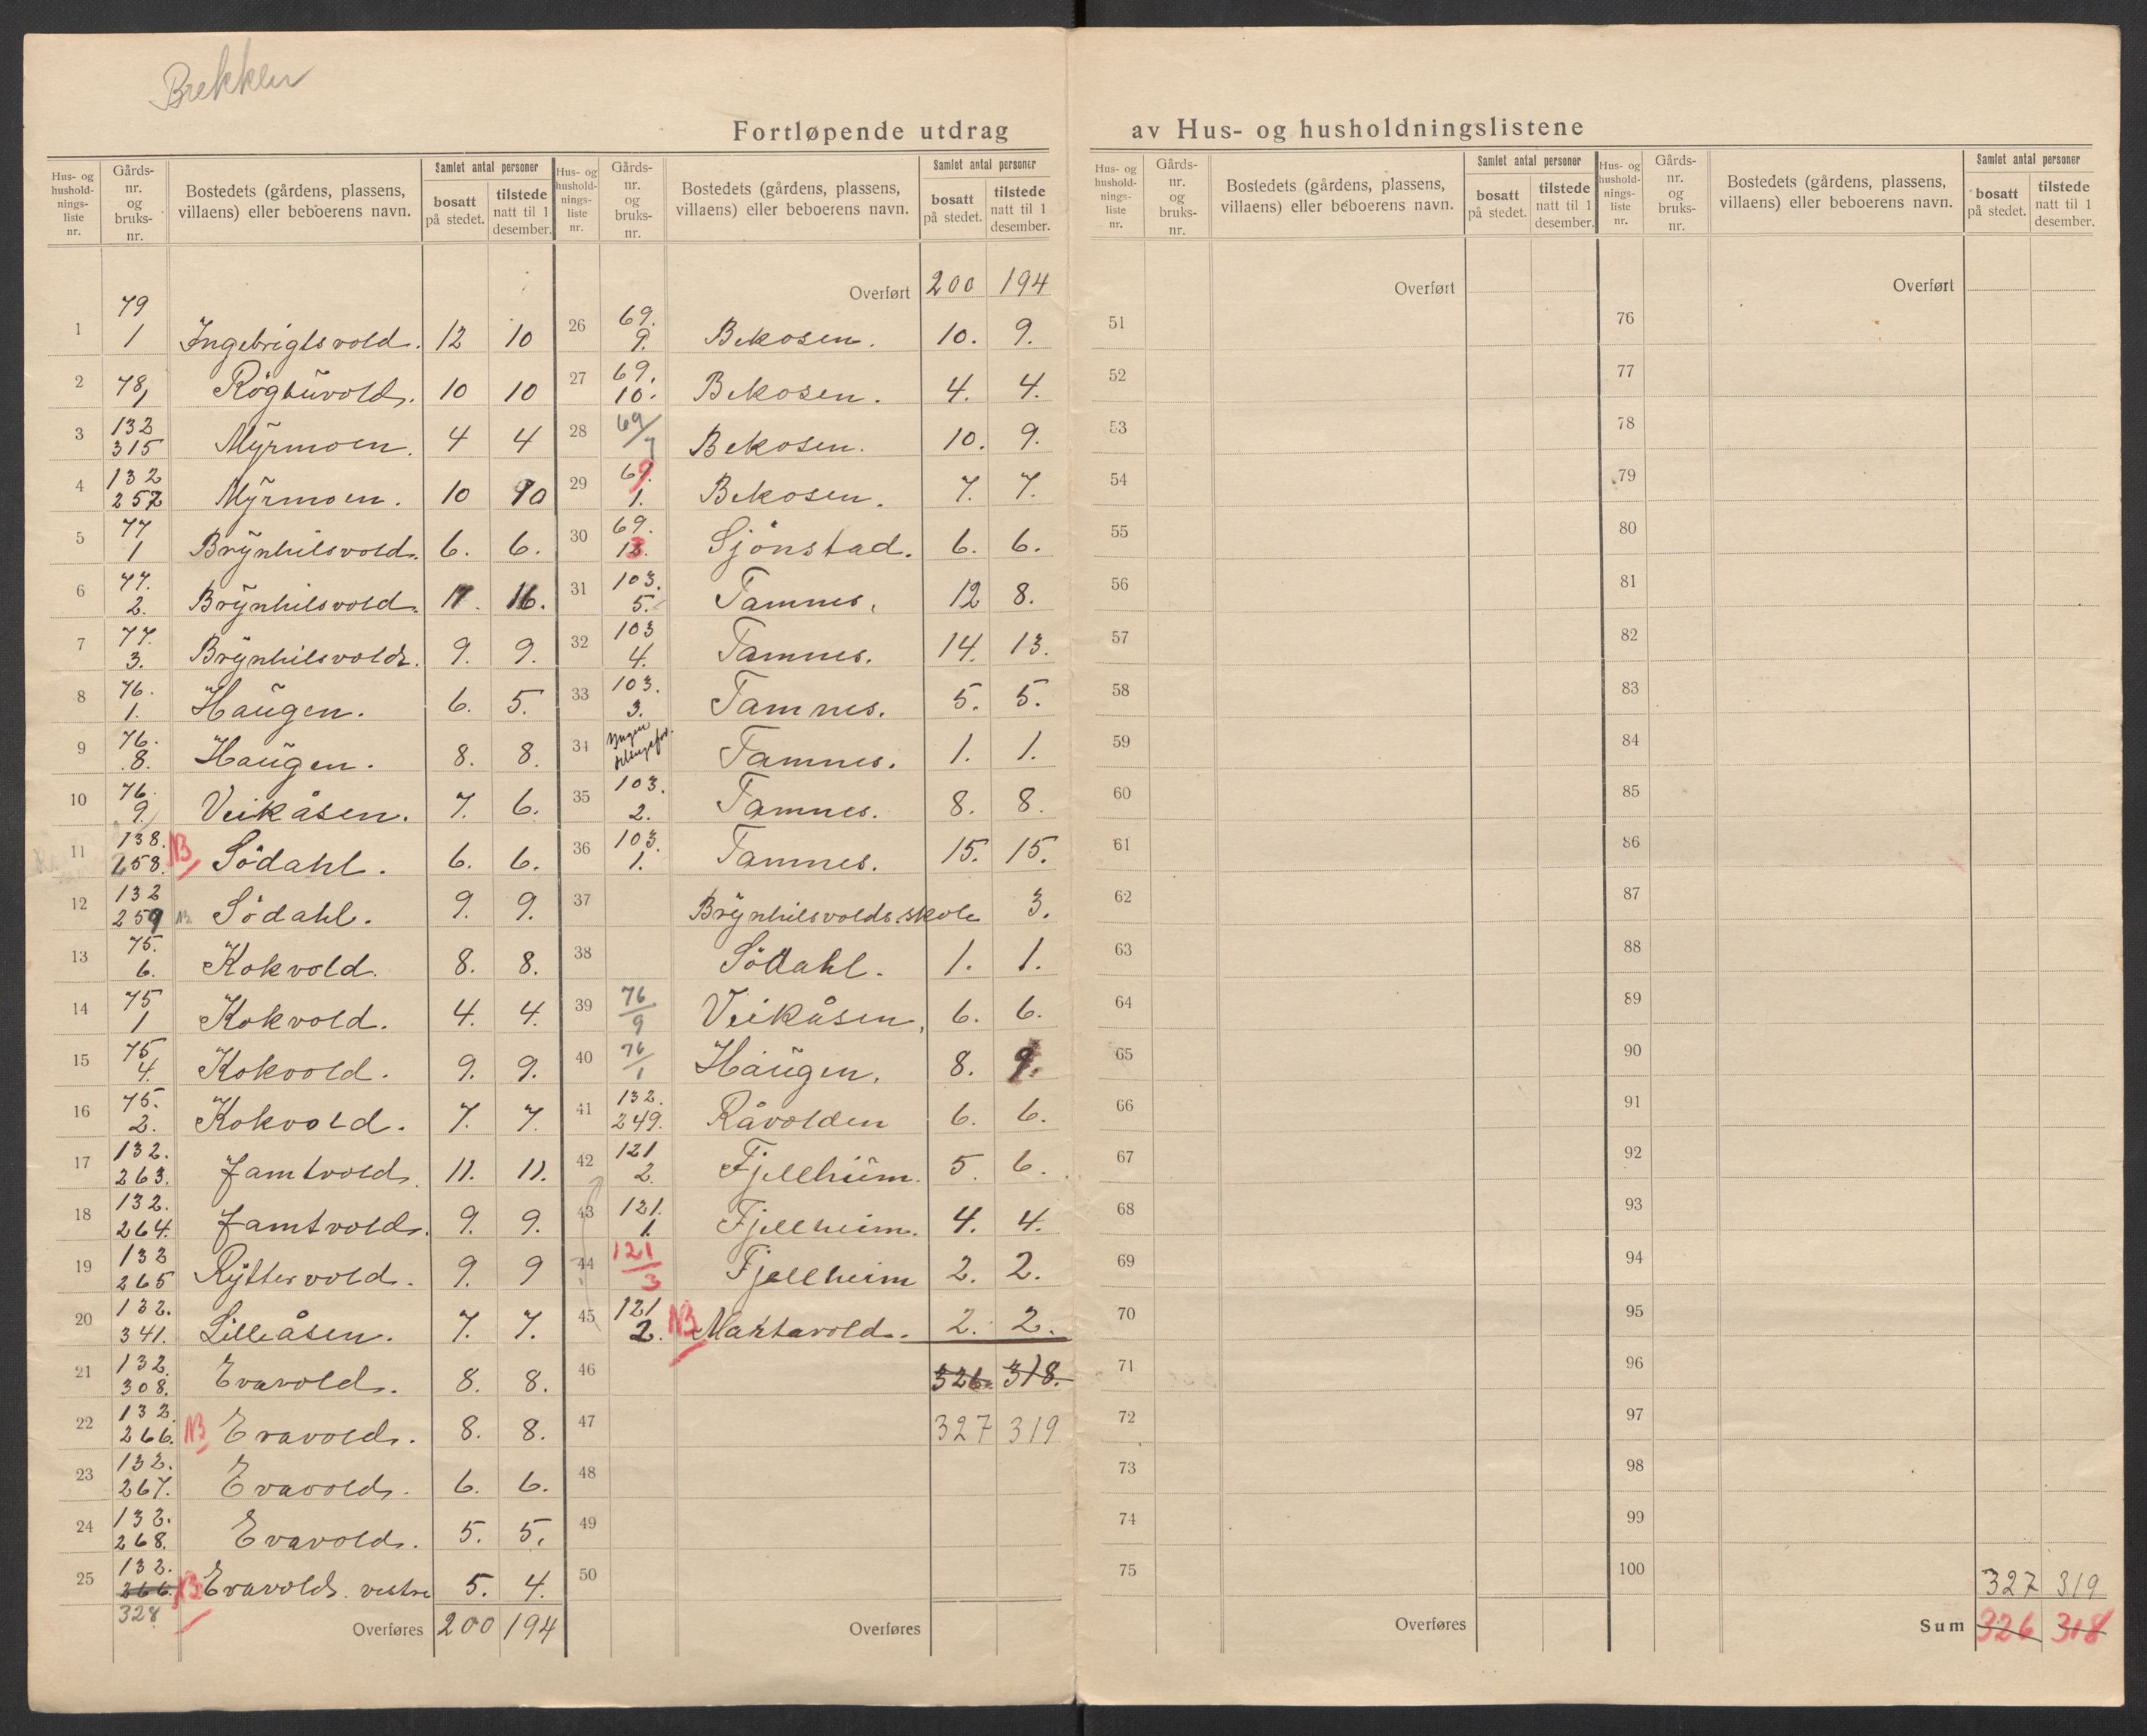 Brekken
Fortløpende utdrag av Hus- og husholdningslistene
Hus- og hushold-nings-liste nr. | Gårds-nr. og bruks-nr. | Bostedets (gårdens, plassens, villaens) eller beboerens navn. | Samlet antal personer | bosatt på stedet. | tilstede natt til 1 desember.
1 79 1 Ingebrigtsvold. 12 10
2 78, 1 10 10
3 132 315 Myrmoen. 4 4
4 132 257 Myrmoen. 10 10
5 77 1 Brynhilsvold. 6. 6.
6 77. 2. Brynhilsvold. 17. 16.
7 77. 3. Brynhilsvold. 9. 9.
8 76. 1. Haugen. 6. 5.
9 76. 8. Haugen. 8. 8.
10 76. 9. Veikåsen. 7. 6.
11 138. 258. NB Södahl. 6. 6.
12 132 259 NB Södahl. 9. 9.
13 75. 6. Kokvold. 8. 8.
14 75 1 Kokvold. 4. 4.
15 75 4. Kokvold. 9. 9.
16 75. 2. Kokvold. 7. 7.
17 132. 263. Jamtvold. 11. 11.
18 132. 264. Jamtvold. 9. 9.
19 132 265 Ryttervold. 9. 9
20 132. 341. Lilleåsen. 7. 7.
21 132. 308. Evavold. 8. 8.
22 132. 266. NB Evavold. 8. 8.
23 132. 267. Evavold. 6. 6.
24 132. 268. Evavold. 5. 5.
25 132. 266. 328 NB Evavold. vestre 5. 4.
Overføres 200 194
Hus- og hushold-nings-liste nr. | Gårds-nr. og bruks-nr. | Bostedets (gårdens, plassens, villaens) eller beboerens navn. | Samlet antal personer | bosatt på stedet. | tilstede natt til 1 desember.
Overført 200 194
26 69. 9. Bekosen. 10. 9.
27 69. 10. Bekosen. 4. 4.
28 69/7 Bekosen. 10. 9.
29 69. 1. Bekosen. 7. 7.
30 69. 13. Sjönstad. 6. 6.
31 103. 5. Tamnes. 12 8.
32 103 4. Tamnes. 14. 13.
33 103. 3. Tamnes. 5. 5.
34 Ingen Tamnes. 1. 1.
35 103. 2. Tamnes. 8. 8.
36 103. 1. Tamnes. 15. 15.
37 Brynhilsvolds skole 3.
38 Södahl. 1. 1.
39 76/9 Veikåsen, 6. 6.
40 76/1 Haugen. 8. 9.
41 132. 249. Råvolden 6. 6.
42 121 2. Fjellheim. 5. 6.
43 121. 1. Fjellheim. 4. 4.
44 121/3 Fjellheim 2. 2.
45 121 2. NB 2. 2.
46 326. 318.
47 327 319
48
49
50
Overføres
Hus- og hushold-nings-liste nr. | Gårds-nr. og bruks-nr. | Bostedets (gårdens, plassens, villaens) eller beboerens navn. | Samlet antal personer | bosatt på stedet. | tilstede natt til 1 desember.
Overført
51
52
53
54
55
56
57
58
59
60
61
62
63
64
65
66
67
68
69
70
71
72
73
74
75
Overføres
Hus- og hushold-nings-liste nr. | Gårds-nr. og bruks-nr. | Bostedets (gårdens, plassens, villaens) eller beboerens navn. | Samlet antal personer | bosatt på stedet. | tilstede natt til 1 desember.
Overført
76
77
78
79
80
81
82
83
84
85
86
87
88
89
90
91
92
93
94
95
96
97
98
99
100 327 319
Sum 326 318